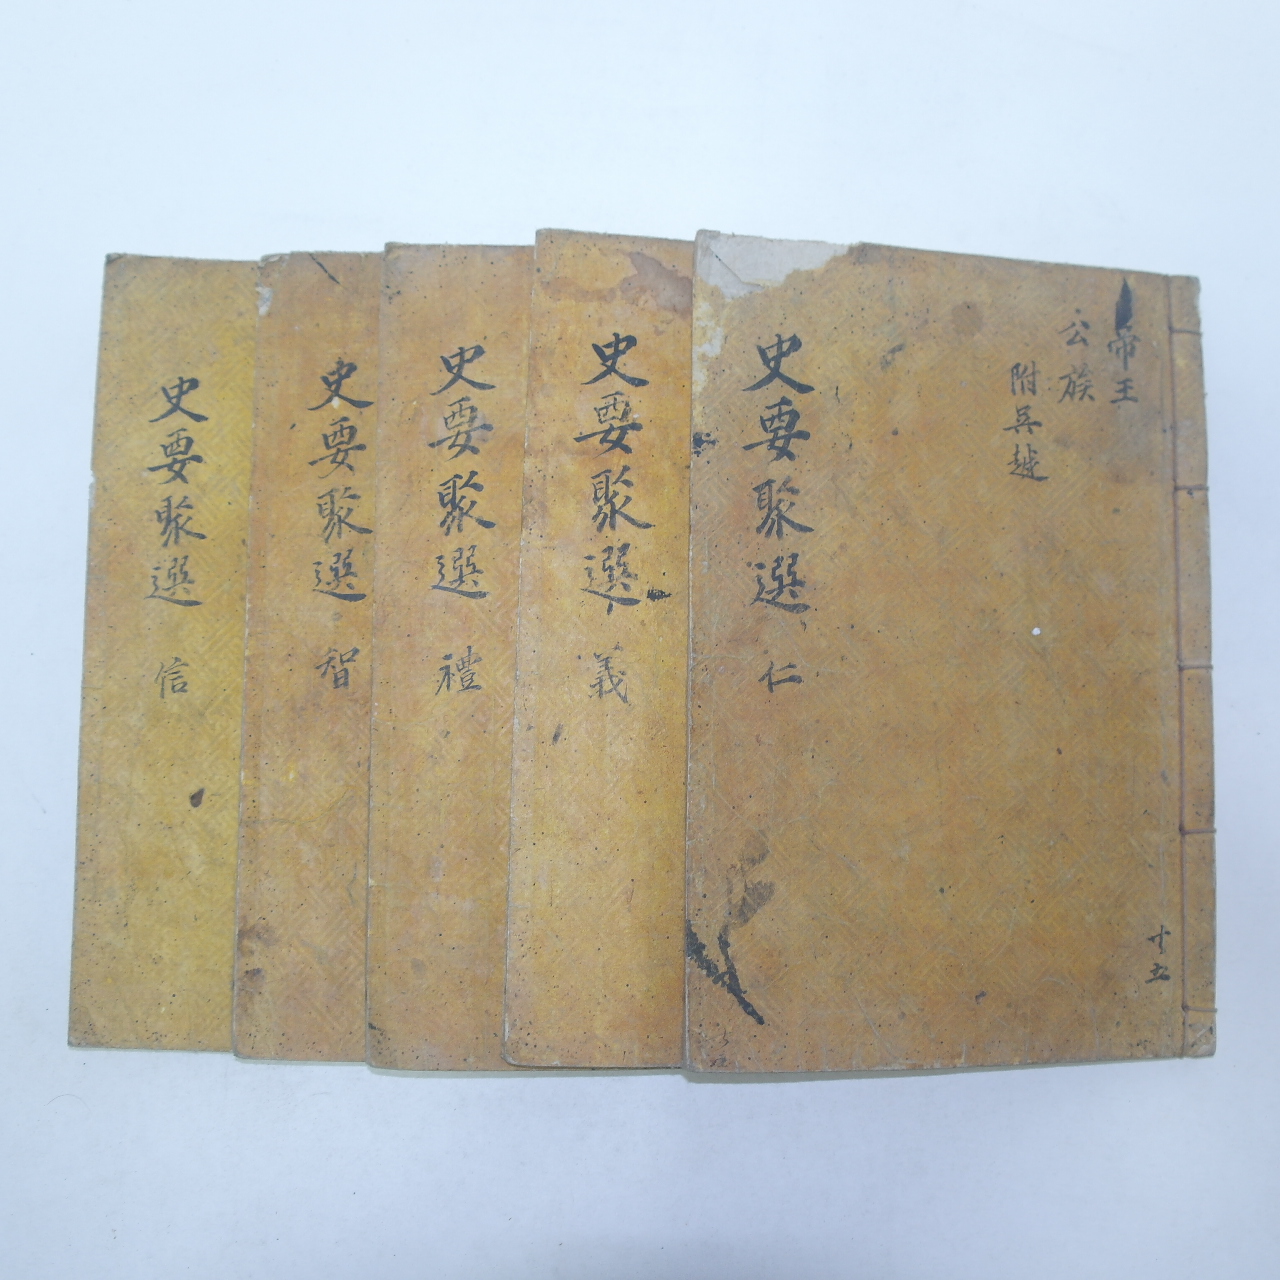 帝王
公族
附吳越
史要聚選 仁
史要聚選 義
史要聚選 禮
史要聚選 智
史要聚選 信